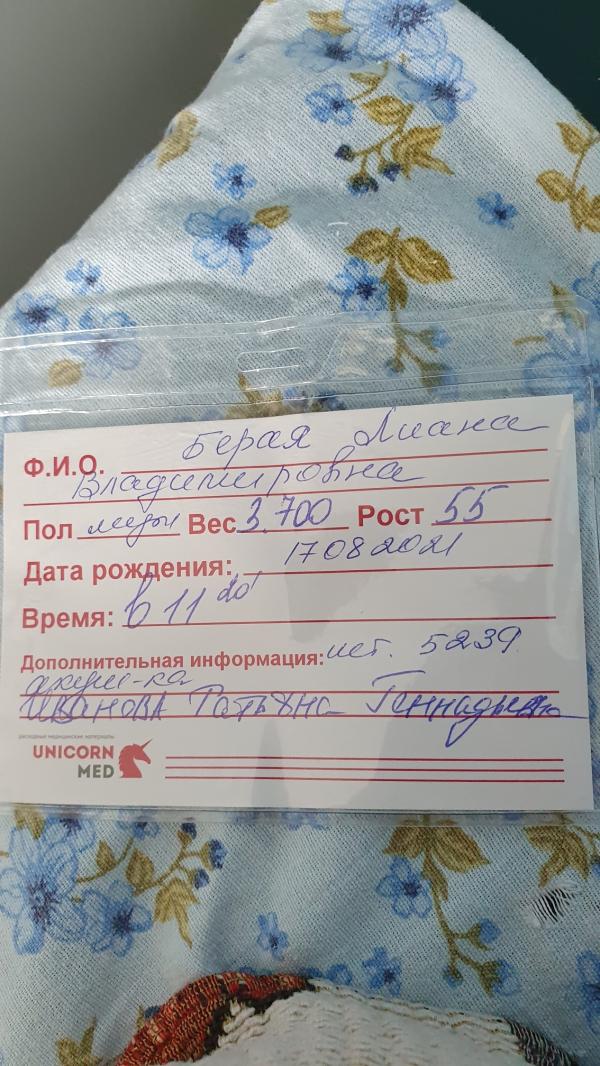 Ф.И.О. Берая Лиана
Владимировна
Пол Вес 3.700 Рост 55
Дата рождения: 17 08 2021
Время: в 11 20'
Дополнительная информация: ист. 5239
акуш-ка
Иванова Татьяна Геннадьевна
расходные медицинские материалы
UNICORN
MED